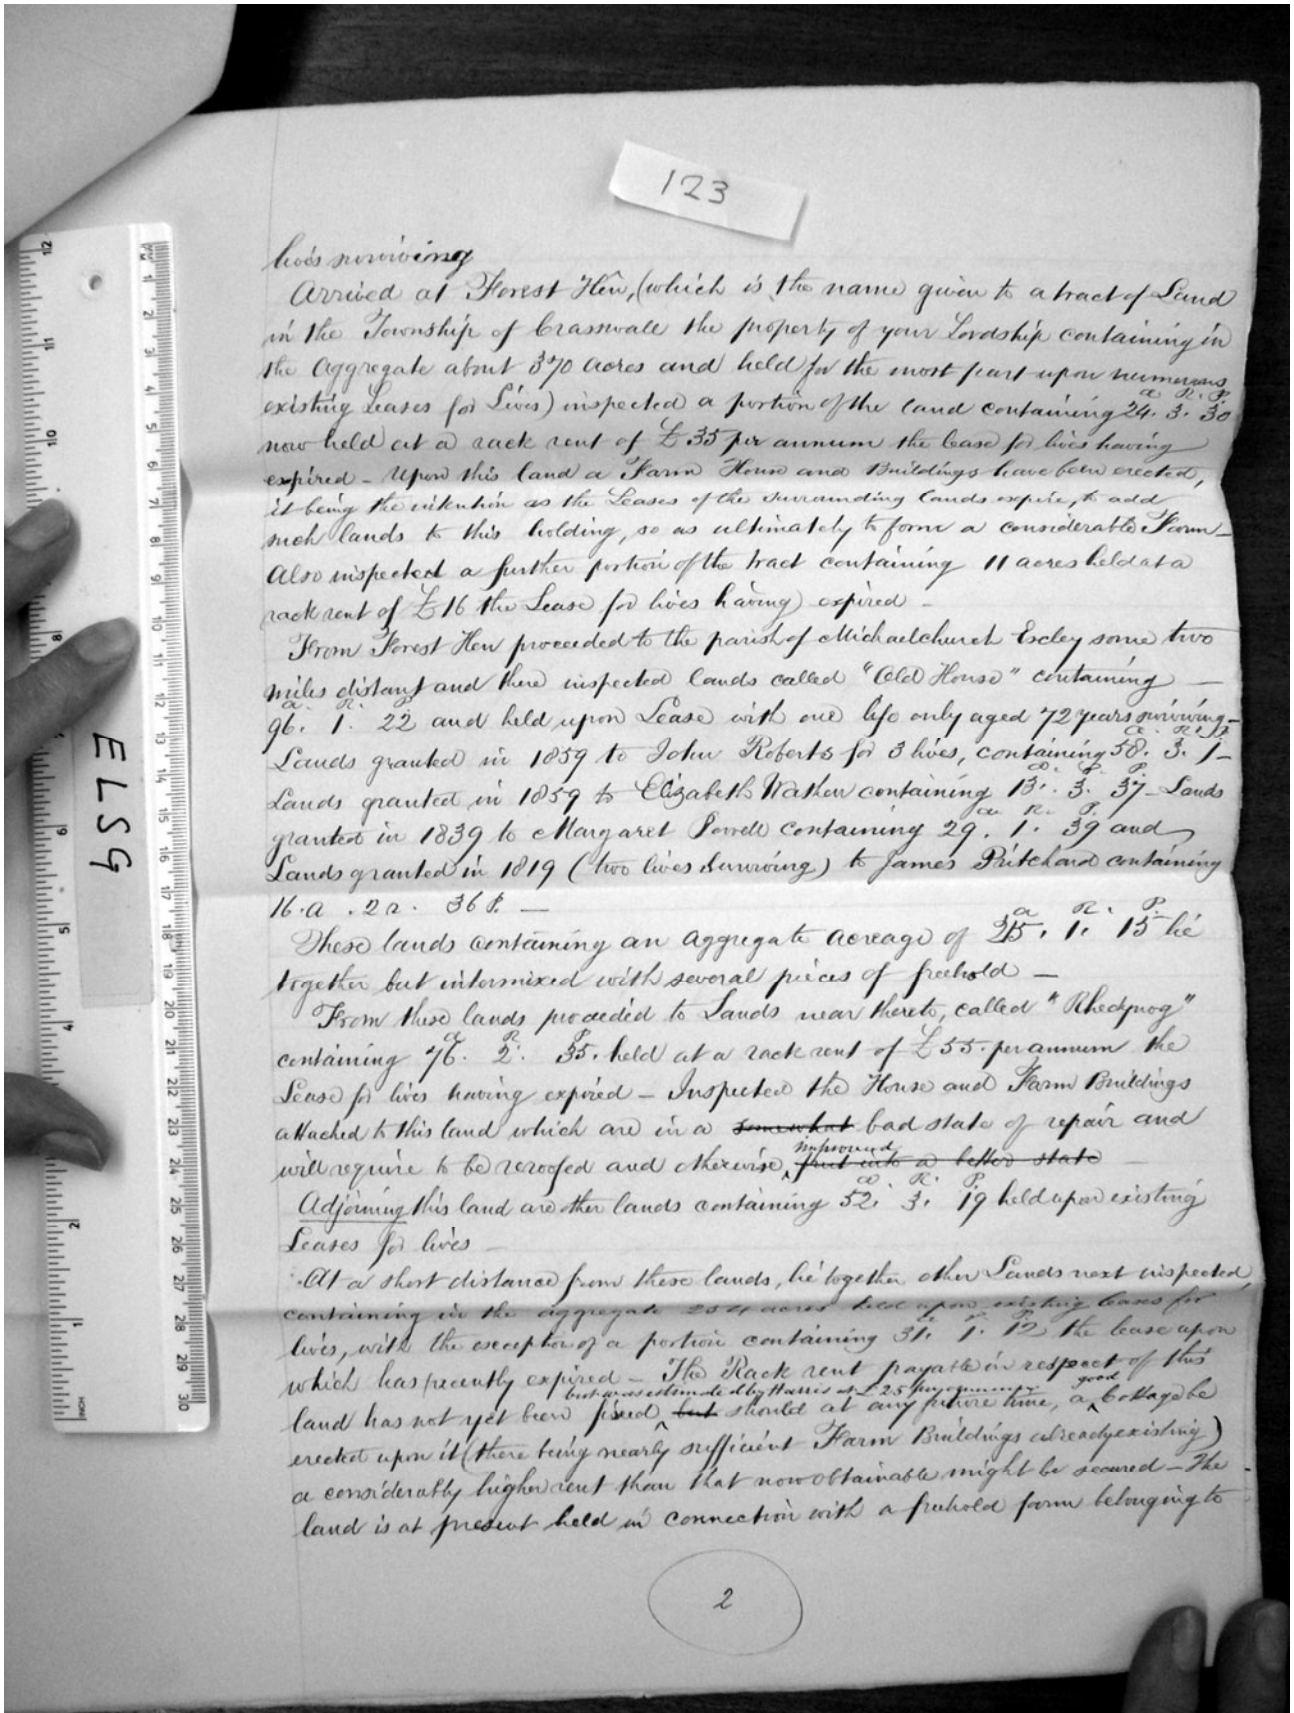 123
lives surviving
Arrived at Forest Hên, (which is the name given to a tract of Land
in the Township of Crasswall the property of your Lordship containing in
the Aggregate about 370 acres and held for the most part upon numerous
existing Leases for Lives) inspected a portion of the land containing 24. a 3. R. 30 P.
now held at a rack rent of £35 per annum the lease for lives having
expired - Upon this land a Farm House and Buildings have been erected,
it being the intention as the Leases of the surrounding lands expire, to add
such lands to this holding, so as ultimately to form a considerable Farm -
Also inspected a further portion of the tract containing 11 acres held at a
rack rent of £16 the Lease for lives having expired -
From Forest Hen proceeded to the parish of Michaelchurch Escley some two
miles distant and there inspected lands called "Old House" containing -
96. a. 1. R. 22 P. and held upon Lease with one life only aged 72 years surviving -
Lands granted in 1859 to John Roberts for 3 lives, containing 58. a. 3. R. 1 P. -
Lands granted in 1859 to Elizabeth Watkin containing 13. a. 3. r. 37 P. - Lands
granted in 1839 to Margaret Powell containing 29. a. 1. R. 39 P. and
Lands granted in 1819 (two lives surviving) to James Pritchard containing
16. a. 2 r. 36 P. -
These lands containing an aggregate acreage of 215. a 1. R. 15 P. lie
together but intermixed with several pieces of freehold -
From these lands proceeded to Lands near thereto, called "Rhedynog"
containing 76. a. 2. R. 35. P. held at a rack rent of £55. per annum the
Lease for lives having expired - Inspected the House and Farm Buildings
attached to this land which are in a somewhat bad state of repair and
will require to be reroofed and otherwise improved put into a better state -
Adjoining this land are other lands containing 52. a. 3. R. 19 P. held upon existing
Leases for lives -
At a short distance from these lands, lie together other Lands next inspected,
containing in the aggregate 254 acres held upon existing leases for
lives, with the exception of a portion containing 31. a. 1. r. 12 P. the lease upon
which has recently expired - The Rack rent payable in respect of this
land has not yet been fixed but was estimated by Harris at £25 per annum but should at any future time, a good Cottage be
erected upon it (there being nearly sufficient Farm Buildings already existing)
a considerably higher rent than that now obtainable might be secured - The
land is at present held in connection with a freehold farm belonging to
2
ELSG